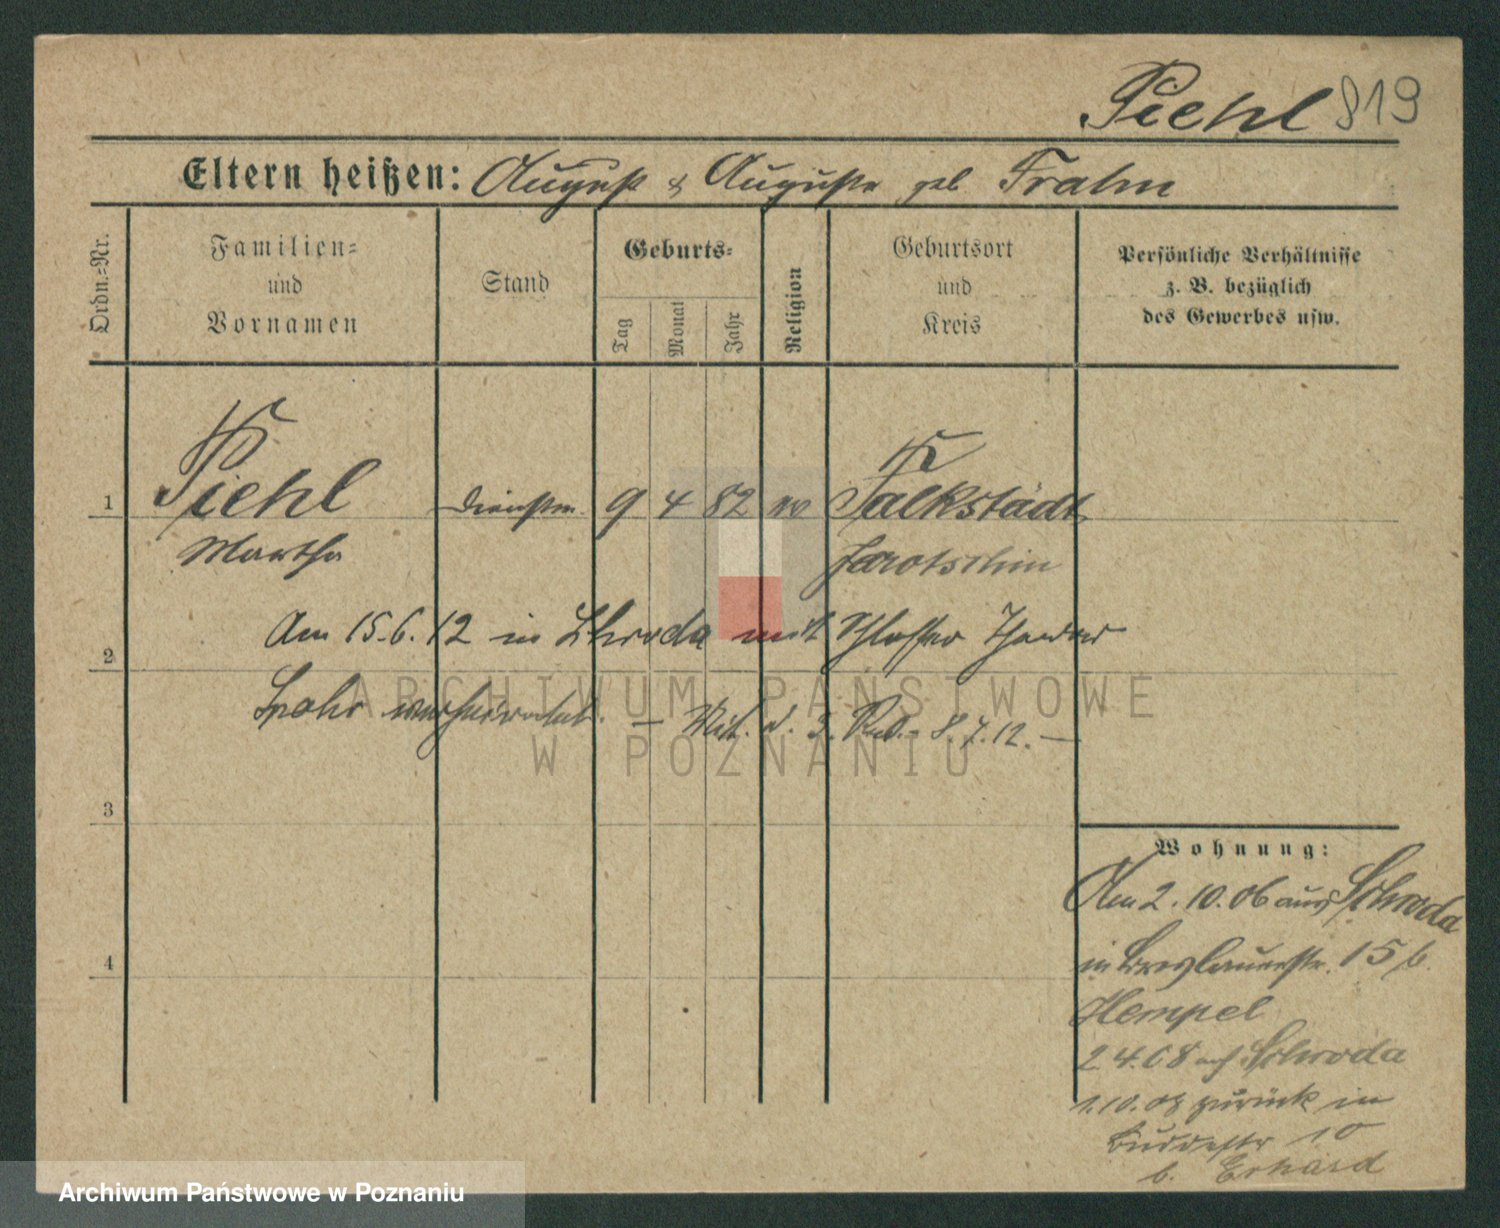 Piehl 819
Eltern heißen: August & Auguste geb Frahm
Ordn.-Nr.
Familien-
und
Vornamen
Stand
Geburts-
Tag
Monat
Jahr
Religion
Geburtsort
und
Kreis
Persönliche Verhältnisse
z. B. bezüglich
des Gewerbes usw.
1
Piehl
Martha
9 4 82
Falkstädt
Jarotschin
Am 15.6.12 in Schroda mit Schlosser
2
Spohr verheiratet. — Mit. d. 8.7.12. —
ARCHIWUM PAŃSTWOWE
W POZNANIU
3
4
Wohnung:
Am 2.10.06 aus Schroda
in Breslauerstr. 15 b.
Hempel
2 4.08 auf Schroda
1.10.08 zurück in
Buddestr 10
b. Erhard
Archiwum Państwowe w Poznaniu